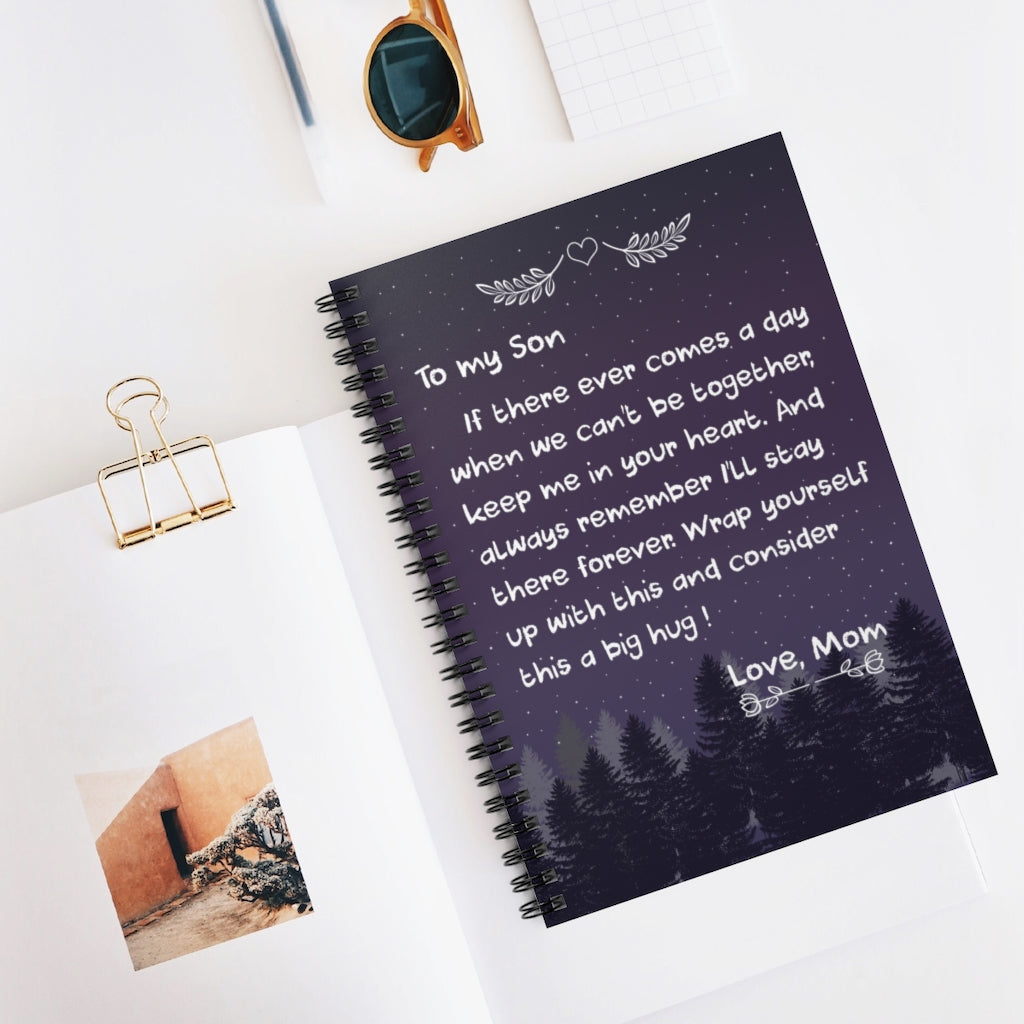 To my Son
If there ever comes a day
when we can't be together,
keep me in your heart. And
always remember I'll stay
there forever. Wrap yourself
up with this and consider
this a big hug !
Love, Mom